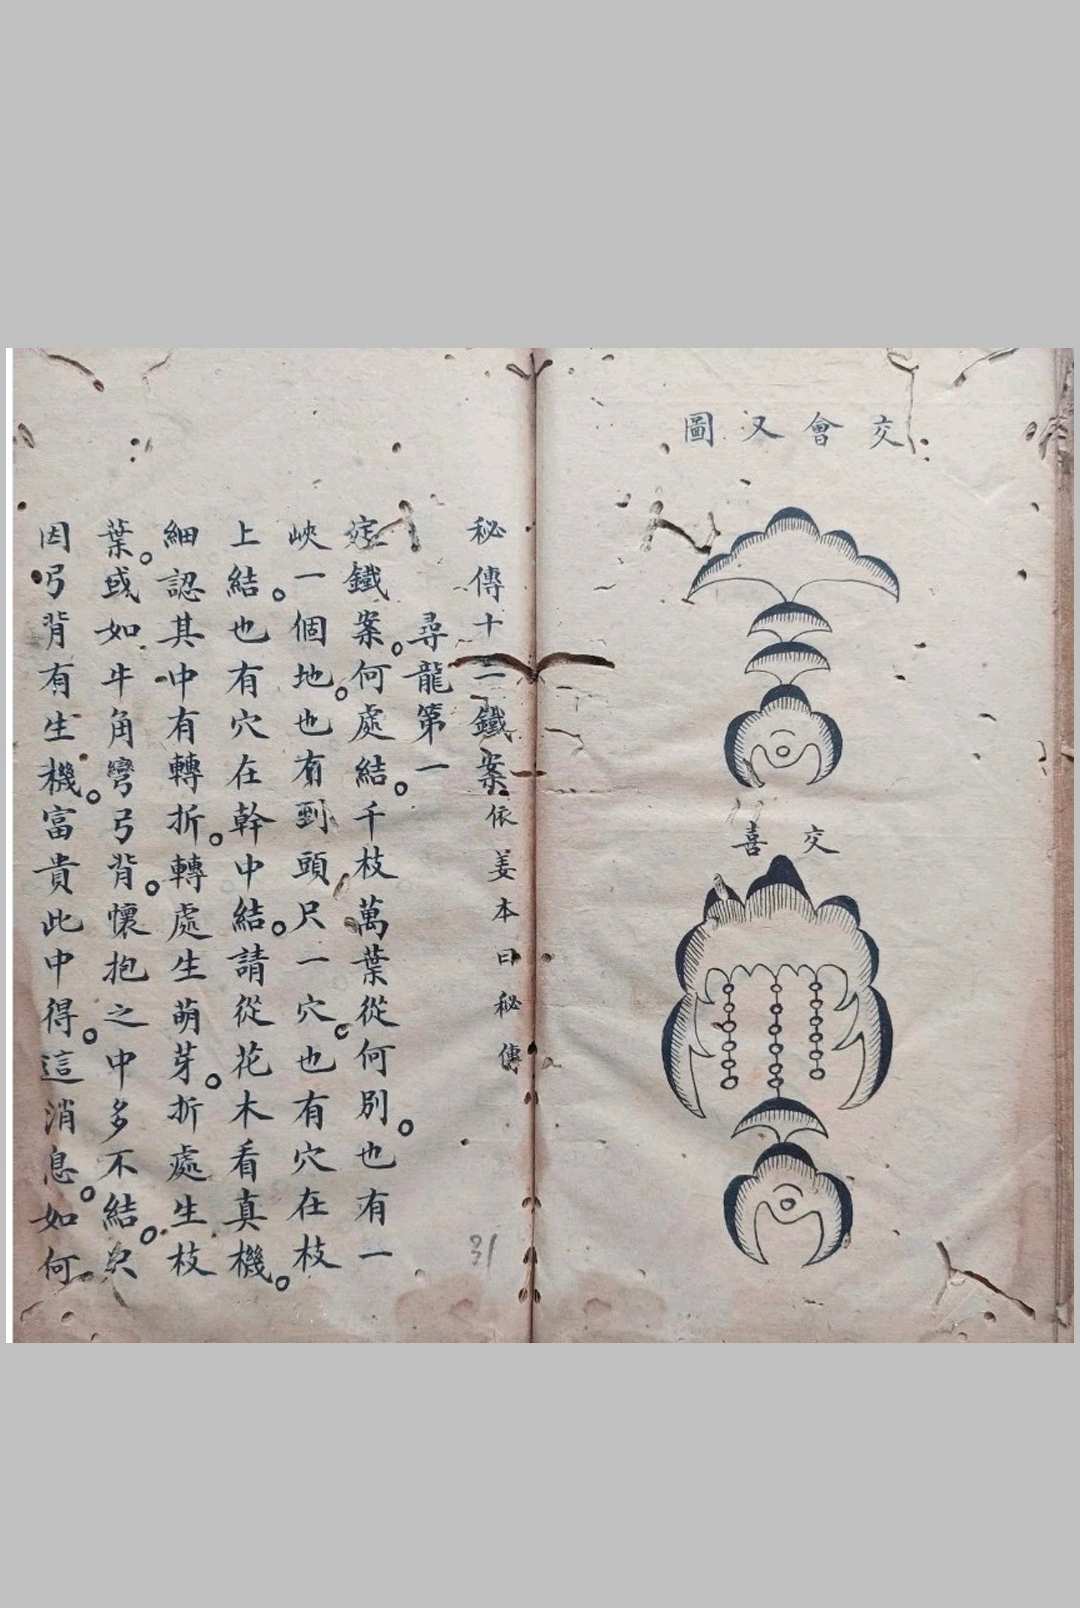 交會又圖
交喜
秘傳十二鐵案 依姜本曰秘傳
尋龍第一
鐵案。何處結。千枝萬葉從何別。也有一
峽一個地。也有到頭尺一穴。也有穴在枝
上結。也有穴在幹中結。請從花木看真機。
細認其中有轉折。轉處生萌芽。折處生枝
葉。或如牛角彎弓背。懷抱之中多不結。只
因弓背有生機。富貴此中得。這消息。如何
31